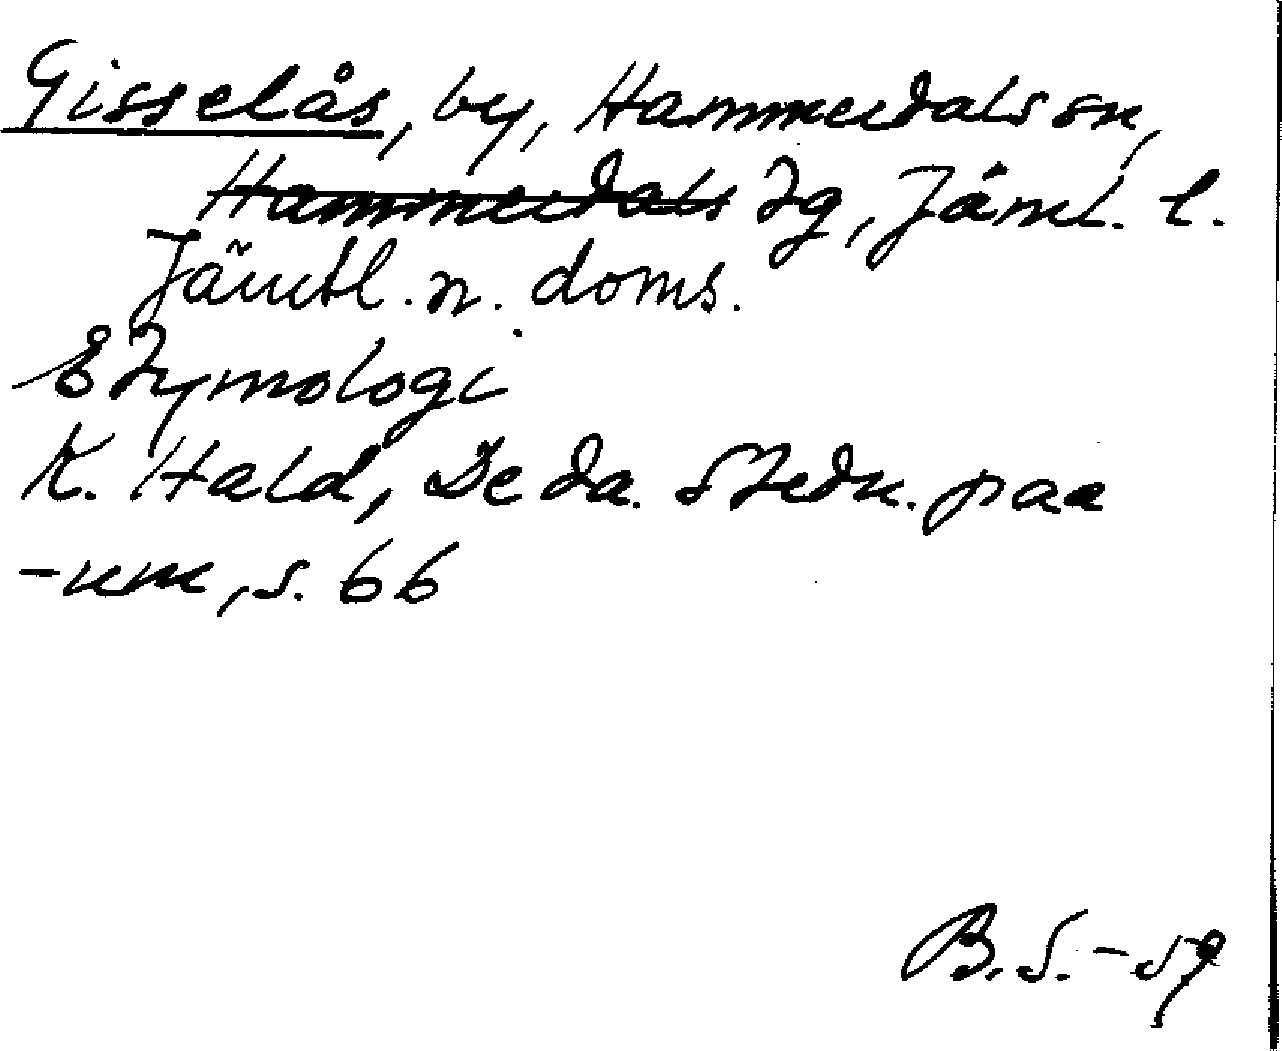 Gisselås, by, Hammerdals sn,
Hammerdals tg, Jämt. l.
Jämtl. n. doms.
Etymologi
K. Hald, De da. Stedn. paa
-um, s. 66
B.S. -59